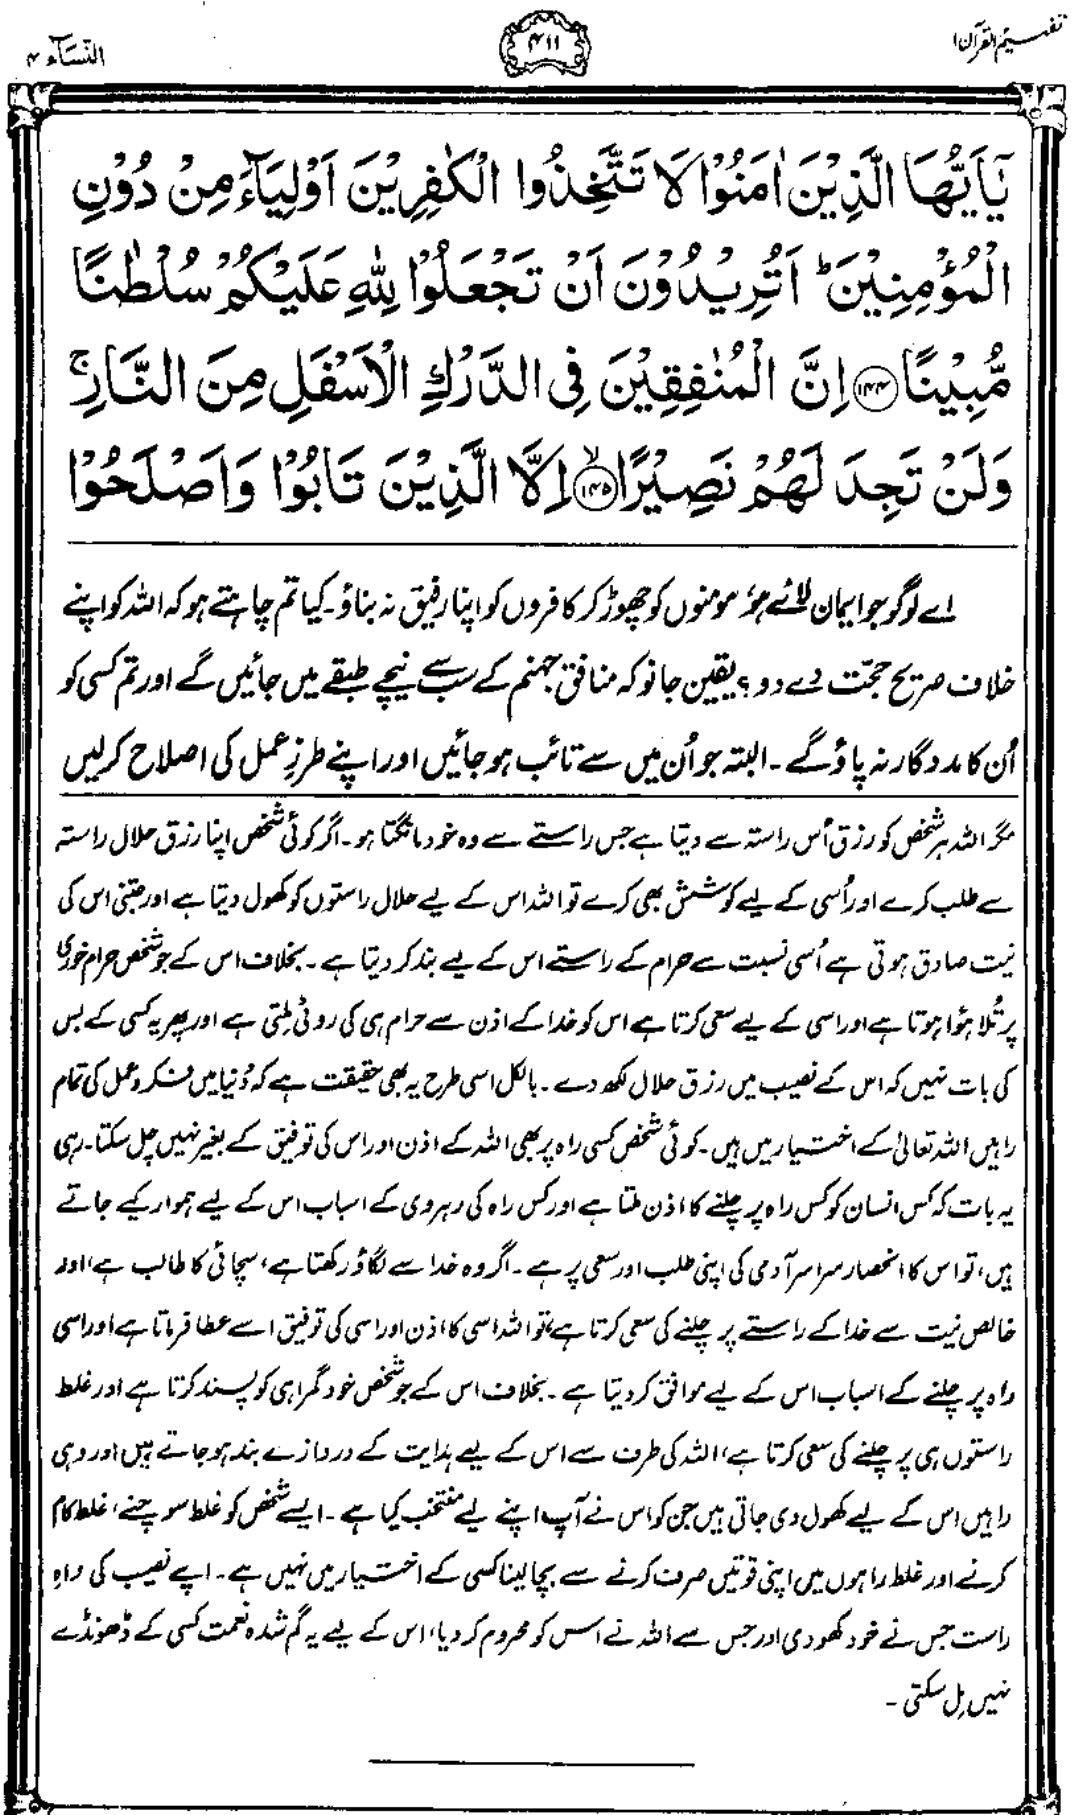 تفہیم القرآن ۱
۴۱۱
النّسَآء ۴
يٰٓاَيُّهَا الَّذِيْنَ اٰمَنُوْا لَا تَتَّخِذُوا الْكٰفِرِيْنَ اَوْلِيَآءَ مِنْ دُوْنِ
الْمُؤْمِنِيْنَ ؕ اَتُرِيْدُوْنَ اَنْ تَجْعَلُوْا لِلّٰهِ عَلَيْكُمْ سُلْطٰنًا
مُّبِيْنًا ﴿۱۴۴﴾ اِنَّ الْمُنٰفِقِيْنَ فِى الدَّرْكِ الْاَسْفَلِ مِنَ النَّارِ ۚ
وَلَنْ تَجِدَ لَهُمْ نَصِيْرًا ﴿۱۴۵﴾ۙ اِلَّا الَّذِيْنَ تَابُوْا وَاَصْلَحُوْا
اے لوگو جو ایمان لائے ہو، مومنوں کو چھوڑ کر کافروں کو اپنا رفیق نہ بناؤ۔ کیا تم چاہتے ہو کہ اللہ کو اپنے
خلاف صریح حجّت دے دو؟ یقین جانو کہ منافق جہنم کے سب سے نیچے طبقے میں جائیں گے اور تم کسی کو
اُن کا مددگار نہ پاؤ گے۔ البتہ جو اُن میں سے تائب ہو جائیں اور اپنے طرزِ عمل کی اصلاح کر لیں
مگر اللہ ہر شخص کو رزق اُس راستہ سے دیتا ہے جس راستے سے وہ خود مانگتا ہو۔ اگر کوئی شخص اپنا رزق حلال راستہ
سے طلب کرے اور اُسی کے لیے کوشش بھی کرے تو اللہ اس کے لیے حلال راستوں کو کھول دیتا ہے اور جتنی اس کی
نیت صادق ہوتی ہے اُسی نسبت سے حرام کے راستے اس کے لیے بند کر دیتا ہے۔ بخلاف اس کے جو شخص حرام خوری
پر تُلا ہؤا ہوتا ہے اور اسی کے لیے سعی کرتا ہے اس کو خدا کے اذن سے حرام ہی کی روٹی ملتی ہے اور پھر یہ کسی کے بس
کی بات نہیں کہ اس کے نصیب میں رزق حلال لکھ دے۔ بالکل اسی طرح یہ بھی حقیقت ہے کہ دُنیا میں فکر و عمل کی تمام
راہیں اللہ تعالیٰ کے اختیار میں ہیں۔ کوئی شخص کسی راہ پر بھی اللہ کے اذن اور اس کی توفیق کے بغیر نہیں چل سکتا۔ رہی
یہ بات کہ کس انسان کو کس راہ پر چلنے کا اذن ملتا ہے اور کس راہ کی رہروی کے اسباب اس کے لیے ہموار کیے جاتے
ہیں، تو اس کا انحصار سراسر آدمی کی اپنی طلب اور سعی پر ہے۔ اگر وہ خدا سے لگاؤ رکھتا ہے، سچائی کا طالب ہے، اور
خالص نیت سے خدا کے راستے پر چلنے کی سعی کرتا ہے، تو اللہ اسی کا اذن اور اسی کی توفیق اسے عطا فرماتا ہے اور اسی
راہ پر چلنے کے اسباب اس کے لیے موافق کر دیتا ہے۔ بخلاف اس کے جو شخص خود گمراہی کو پسند کرتا ہے اور غلط
راستوں ہی پر چلنے کی سعی کرتا ہے، اللہ کی طرف سے اس کے لیے ہدایت کے دروازے بند ہو جاتے ہیں اور وہی
راہیں اس کے لیے کھول دی جاتی ہیں جن کو اس نے آپ اپنے لیے منتخب کیا ہے۔ ایسے شخص کو غلط سوچنے، غلط کام
کرنے اور غلط راہوں میں اپنی قوتیں صرف کرنے سے بچا لینا کسی کے اختیار میں نہیں ہے۔ اپنے نصیب کی راہِ
راست جس نے خود کھو دی اور جس سے اللہ نے اس کو محروم کر دیا، اس کے لیے یہ گم شدہ نعمت کسی کے ڈھونڈے
نہیں مِل سکتی۔